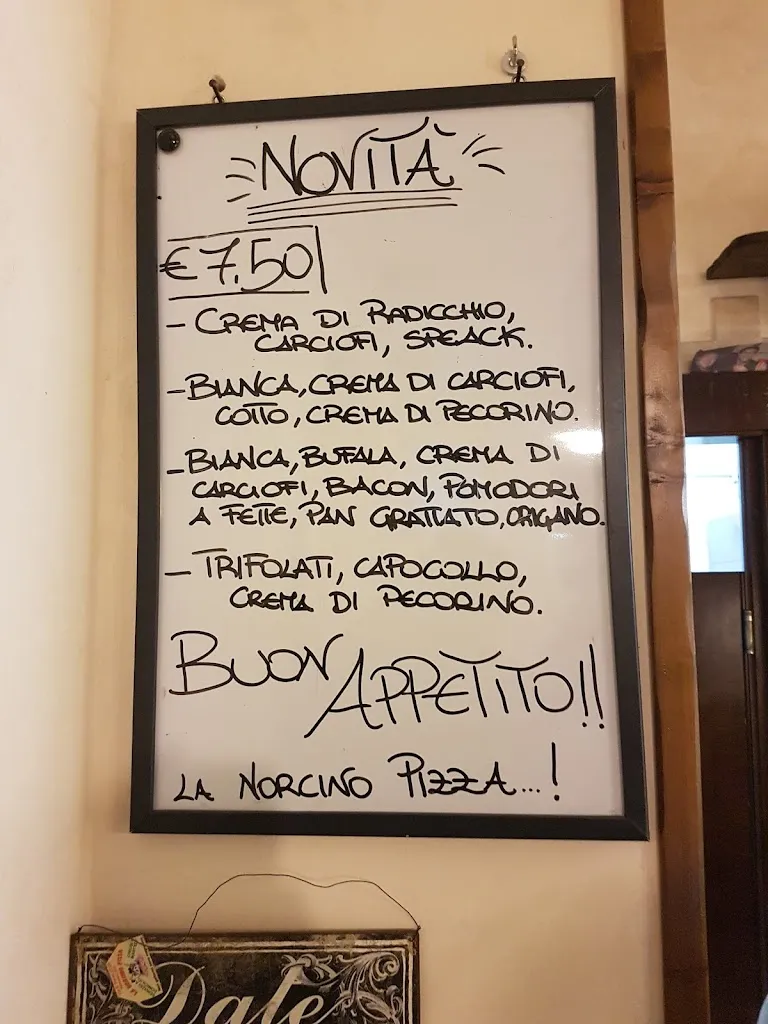 NOVITÀ
€7,50
- CREMA DI RADICCHIO,
CARCIOFI, SPEACK.
- BIANCA, CREMA DI CARCIOFI,
COTTO, CREMA DI PECORINO.
- BIANCA, BUFALA, CREMA DI
CARCIOFI, BACON, POMODORI
A FETTE, PAN GRATTATO, ORIGANO.
- TRIFOLATI, CAPOCOLLO,
CREMA DI PECORINO.
BUON APPETITO!!
LA NORCINO PIZZA...!
Date